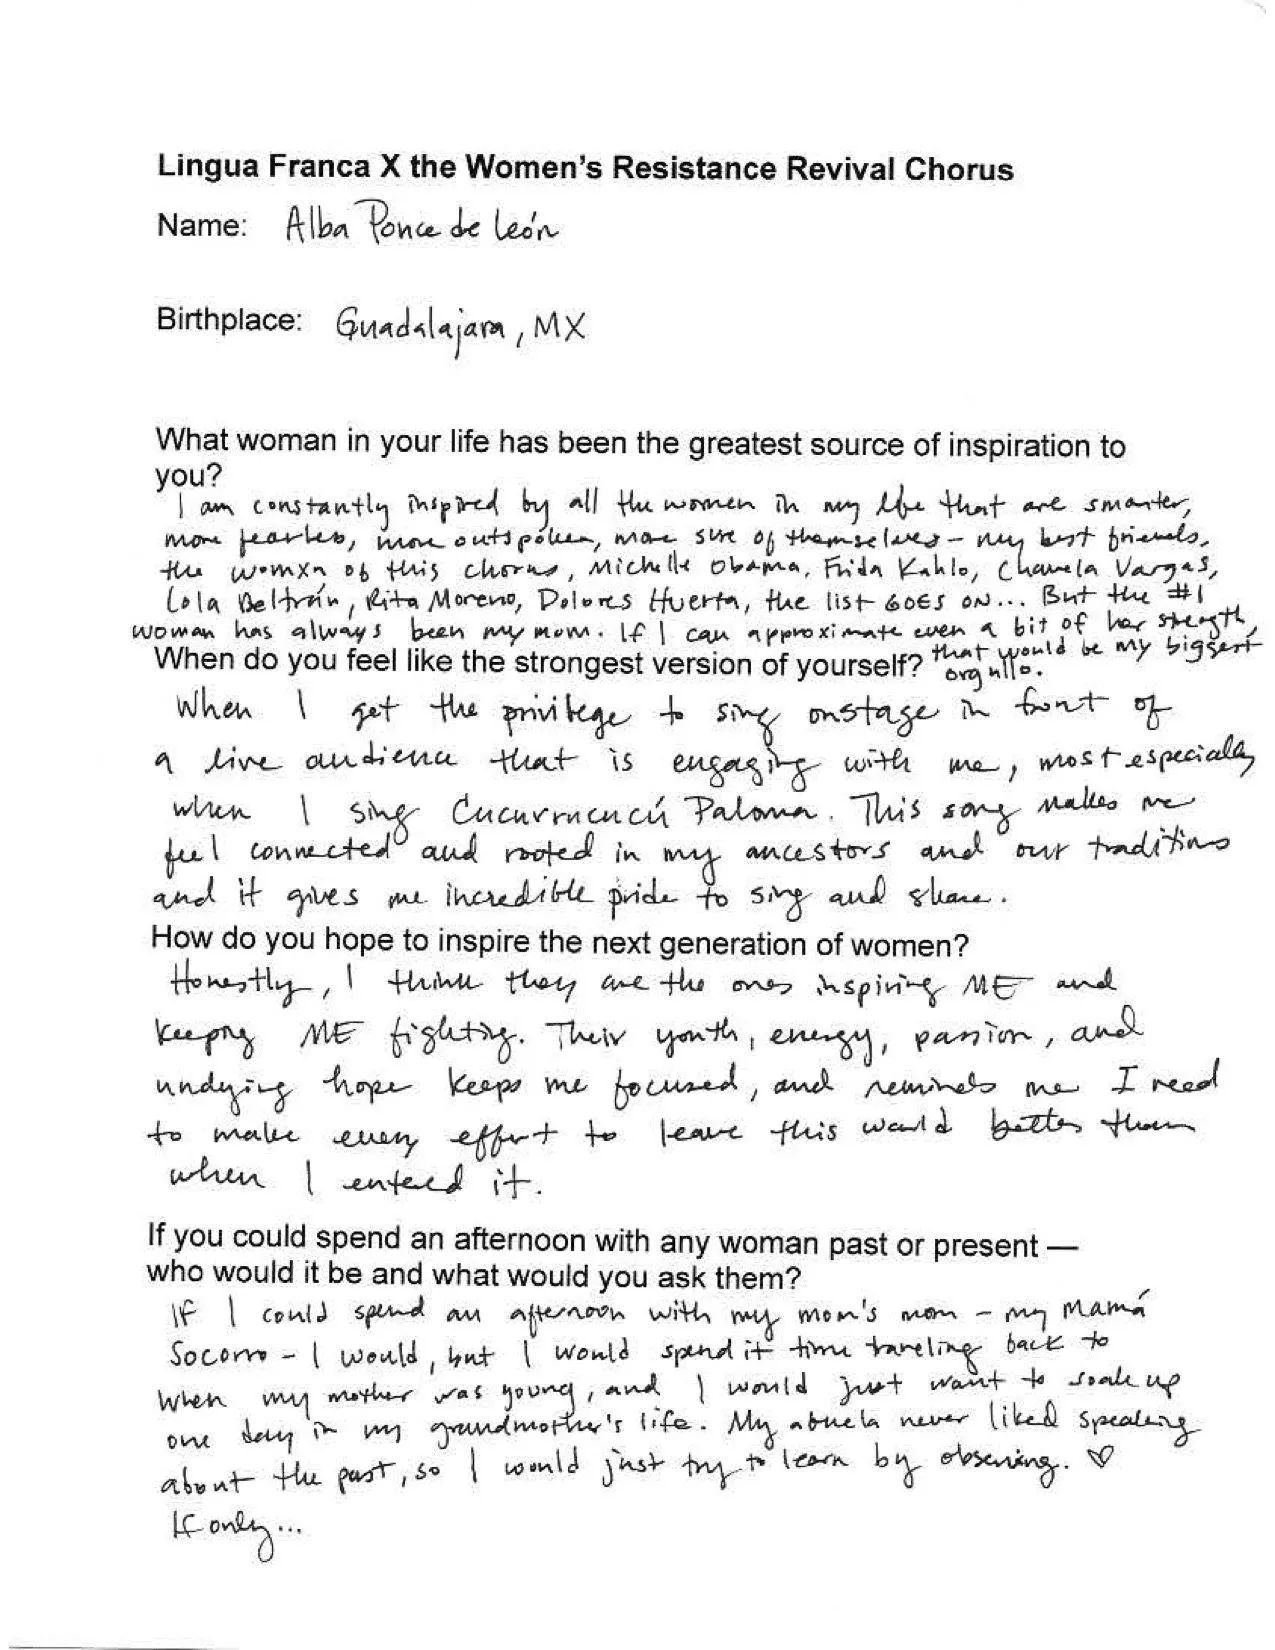 Lingua Franca X the Women's Resistance Revival Chorus
Name: Alba Ponce de León
Birthplace: Guadalajara, MX
What woman in your life has been the greatest source of inspiration to
you?
I am constantly inspired by all the women in my life that are smarter,
more fearless, more outspoken, more sure of themselves - my best friends,
the womxn of this chorus, Michelle Obama, Frida Kahlo, Chavela Vargas,
Lola Beltrán, Rita Moreno, Dolores Huerta, the list GOES ON... But the #1
woman has always been my mom. If I can approximate even a bit of her strength,
that would be my biggest
orgullo.
When do you feel like the strongest version of yourself?
When I get the privilege to sing onstage in front of
a live audience that is engaging with me, most especially
when I sing Cucurrucucú Paloma. This song makes me
feel connected and rooted in my ancestors and our traditions
and it gives me incredible pride to sing and share.
How do you hope to inspire the next generation of women?
Honestly, I think they are the ones inspiring ME and
keeping ME fighting. Their youth, energy, passion, and
undying hope keeps me focused, and reminds me I need
to make every effort to leave this world better than
when I entered it.
If you could spend an afternoon with any woman past or present —
who would it be and what would you ask them?
If I could spend an afternoon with my mom's mom - my Mamá
Socorro - I would, but I would spend it time traveling back to
when my mother was young, and I would just want to soak up
one day in my grandmother's life. My abuela never liked speaking
about the past, so I would just try to learn by observing. ♡
If only...